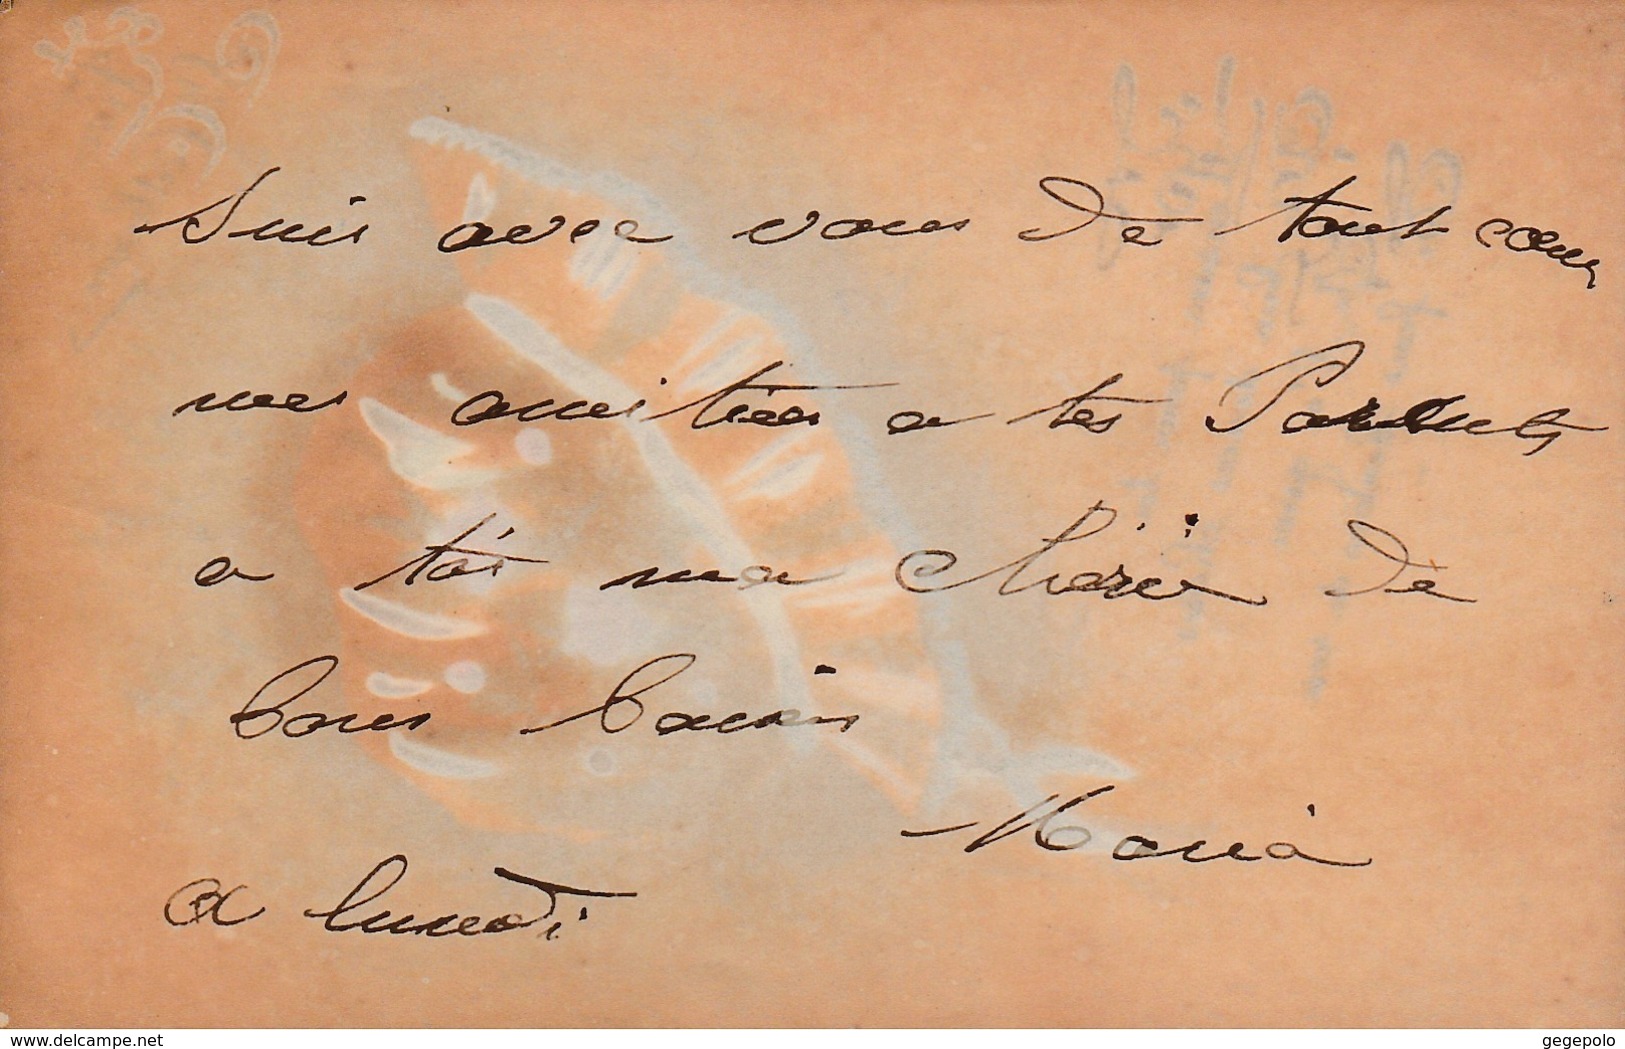 Suis avec vous de tout cœur
mes amitiées a tes Parents
a toi ma Chérie de
bons baisers
Maria
a lundi
delcampe.net
gegepolo